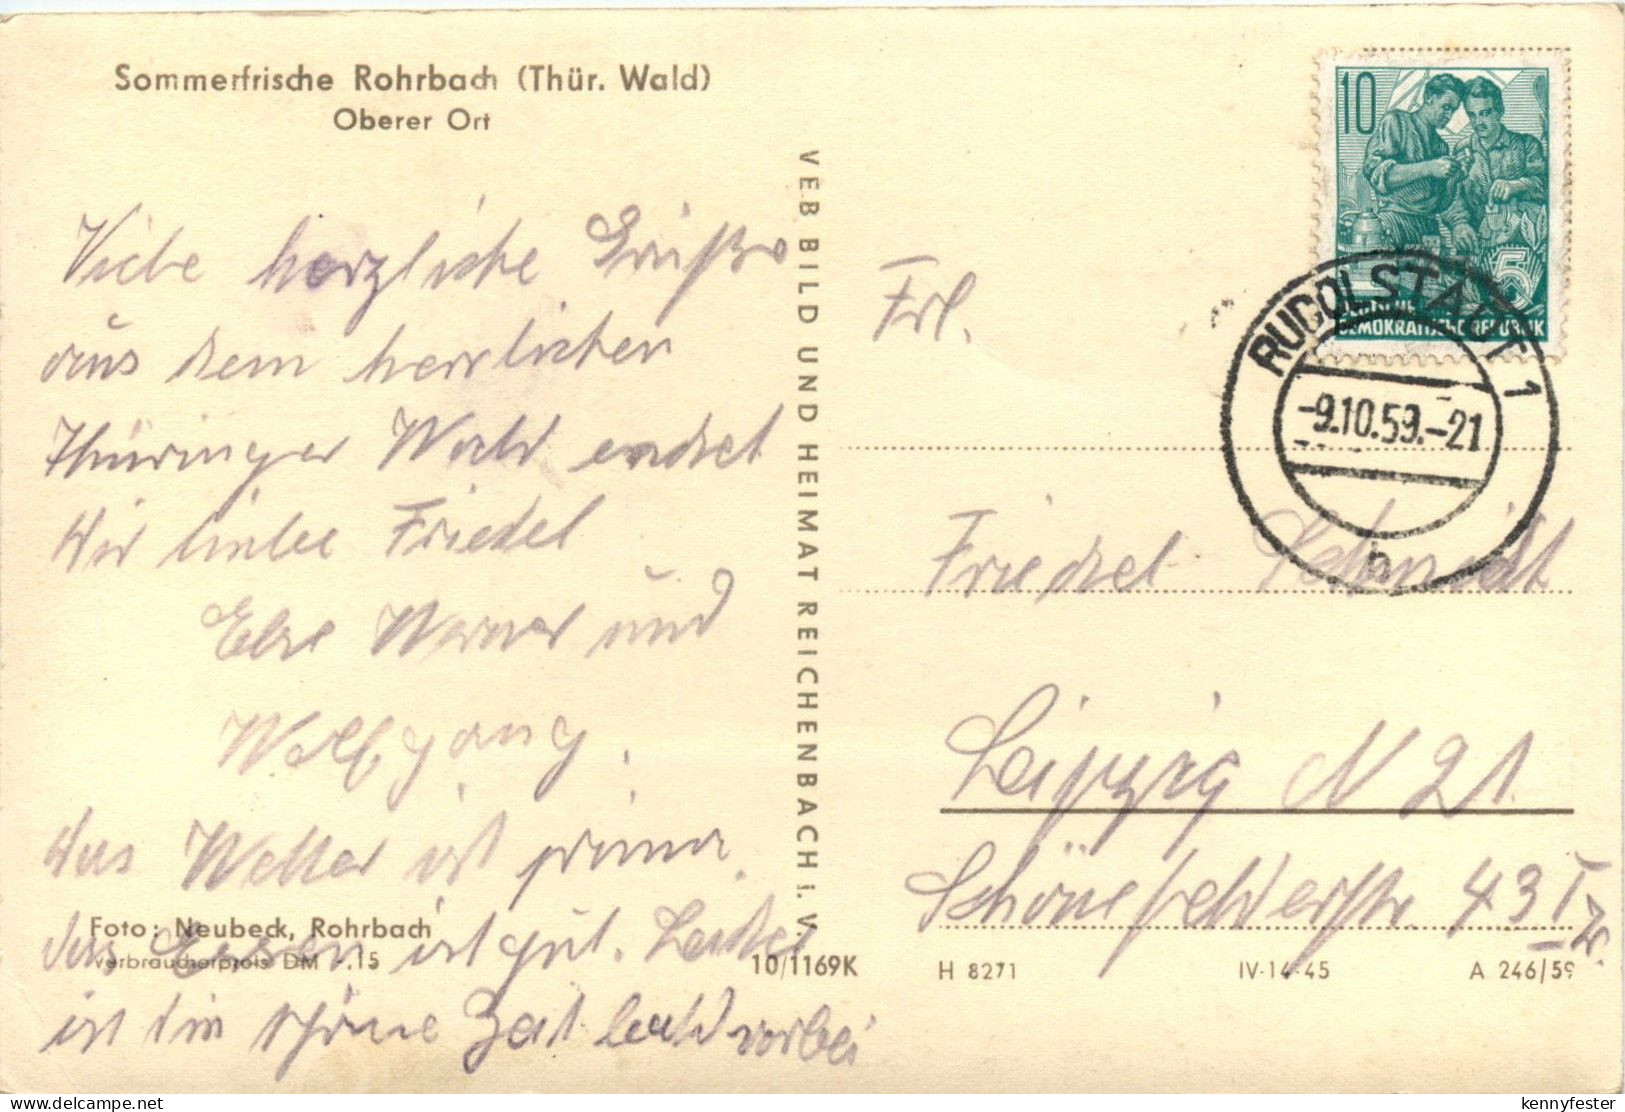 Sommerfrische Rohrbach (Thür. Wald)
Oberer Ort
Viele herzliche Grüße
aus dem herrlichen
Thüringer Wald endet
Wir liebe Friedel
Else Werner und
Wolfgang.
das Wetter ist prima.
das Essen ist gut. Leider
ist die schöne Zeit bald vorbei
Foto: Neubeck, Rohrbach
Verbraucherpreis DM -.15
10/1169K
VEB BILD UND HEIMAT REICHENBACH i. V.
10
5
DEUTSCHE
DEMOKRATISCHE REPUBLIK
RUDOLSTADT 1
-9.10.59.-21
h
Frl.
Friedel Schmidt
Leipzig N 21.
Schönefelderstr. 43 I
H 8271
IV-14-45
A 246/59
kennyfester